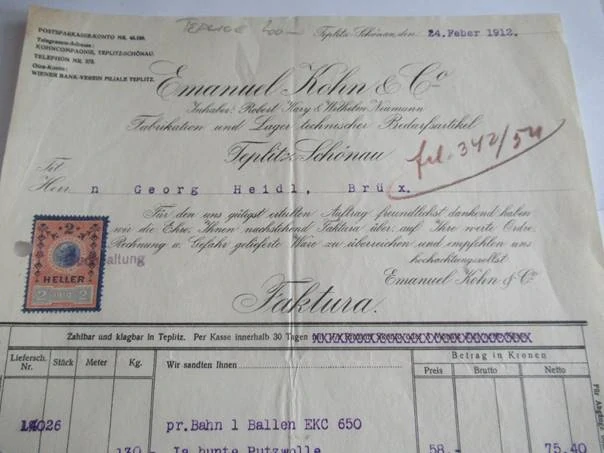 TEPLICE 200-
POSTSPARKASSEN-KONTO NR.
Telegramm-Adresse:
KOHNCOMPAGNIE, TEPLITZ-SCHÖNAU.
TELEPHON NR. 272.
Giro-Konto:
WIENER BANK-VEREIN FILIALE TEPLITZ.
Teplitz-Schönau, den 24.Feber 1912.
Emanuel Kohn & Co
Inhaber: Robert Hary & Wilhelm Neumann
Fabrikation und Lager technischer Bedarfsartikel
Teplitz-Schönau
fol. 342/54
Tit.
Herr n Georg Heidl, Brüx.
Für den uns gütigst erteilten Auftrag freundlichst dankend haben
wir die Ehre, Ihnen nachstehend Faktura über auf Ihre werte Ordre,
Rechnung u. Gefahr gelieferte Ware zu überreichen und empfehlen uns
hochachtungsvollst
Emanuel Kohn & Co
2
HELLER
2 1910 2
haltung
Faktura.
Zahlbar und klagbar in Teplitz. Per Kasse innerhalb 30 Tagen
Liefersch. Nr. Stück Meter Kg. Wir sandten Ihnen Betrag in Kronen
Preis Brutto Netto
26 pr.Bahn 1 Ballen EKC 650
130.- Ia bunte Putzwolle 58.- 75.40